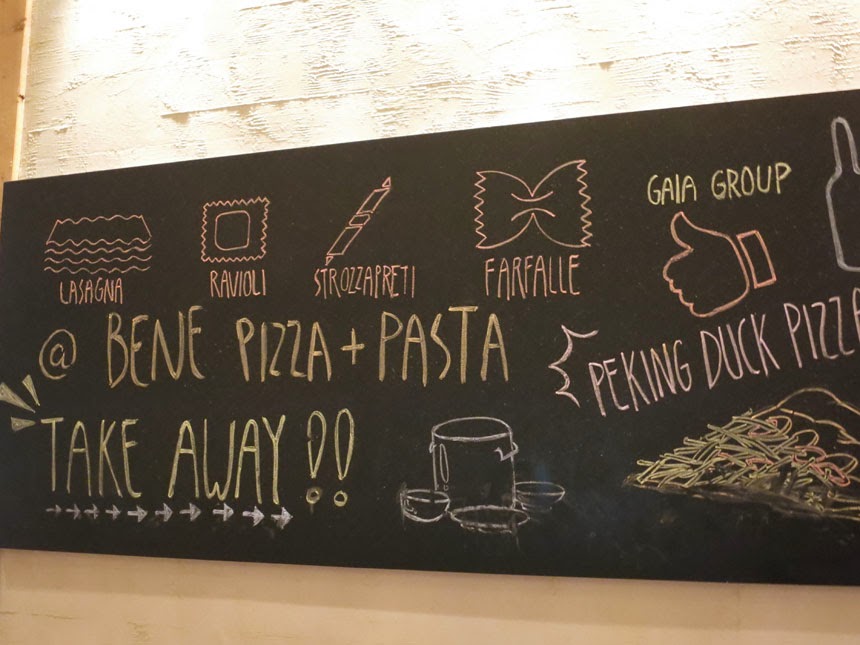 GAIA GROUP
LASAGNA RAVIOLI STROZZAPRETI FARFALLE
@ BENE PIZZA + PASTA
PEKING DUCK PIZZA
TAKE AWAY !!